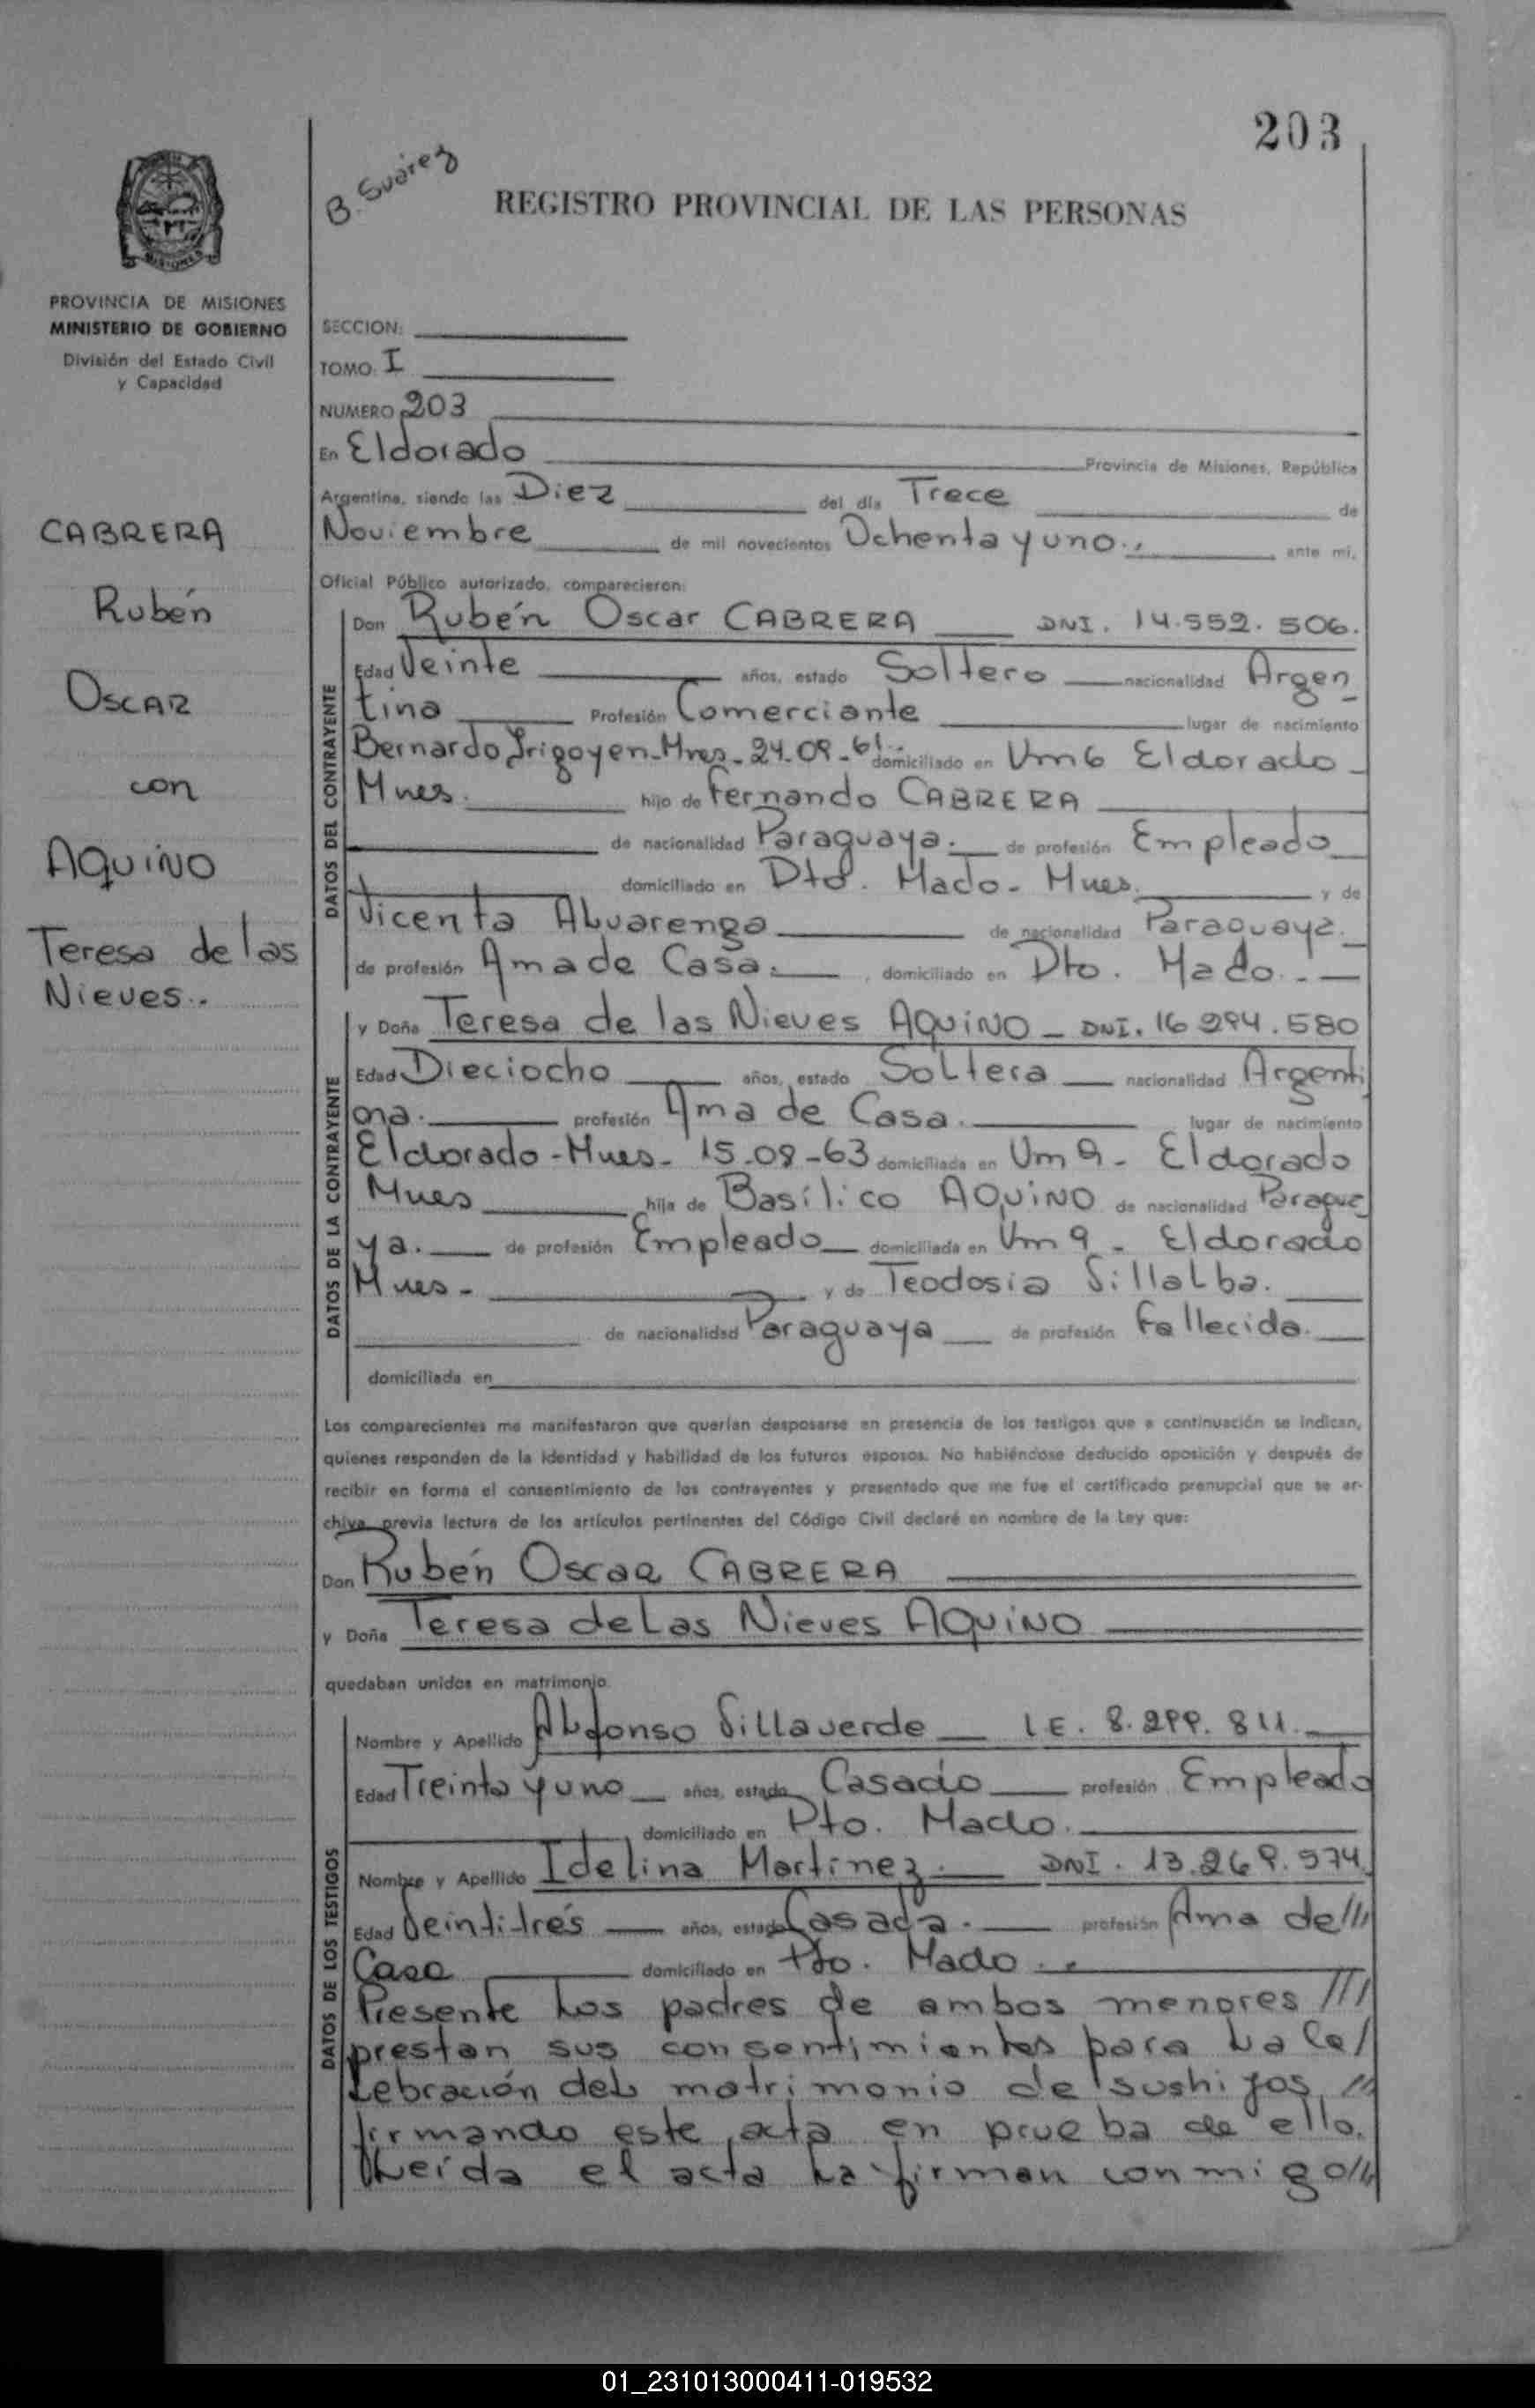 203
B. Suárez
REGISTRO PROVINCIAL DE LAS PERSONAS
PROVINCIA DE MISIONES
MINISTERIO DE GOBIERNO
División del Estado Civil
y Capacidad
CABRERA
Rubén
OSCAR
con
AQUINO
Teresa de las
Nieves..
SECCION:
TOMO: I
NUMERO 203
En Eldorado Provincia de Misiones, República
Argentina, siendo las Diez del día Trece de
Noviembre de mil novecientos Ochenta y uno.. ante mí,
Oficial Público autorizado, comparecieron:
DATOS DEL CONTRAYENTE
Don Rubén Oscar CABRERA DNI. 14.552.506.
Edad Veinte años, estado Soltero nacionalidad Argen
tina Profesión Comerciante lugar de nacimiento
Bernardo Irigoyen-Mnes- 24-09-61. domiciliado en Km6 Eldorado-
Mnes. hijo de Fernando CABRERA
de nacionalidad Paraguaya. de profesión Empleado
domiciliado en Dto. Mado- Mnes. y de
Vicenta Alvarenga de nacionalidad Paraguaya.
de profesión Ama de Casa. domiciliado en Dto. Mado.-
DATOS DE LA CONTRAYENTE
y Doña Teresa de las Nieves AQUINO - DNI. 16 294.580
Edad Dieciocho años, estado Soltera nacionalidad Argenti
na. profesión Ama de Casa. lugar de nacimiento
Eldorado-Mnes- 15-08-63 domiciliada en Km 9- Eldorado
Mnes hija de Basílico AQUINO de nacionalidad Paragua
ya. de profesión Empleado domiciliada en Km 9 - Eldorado
Mnes- y de Teodosia Villalba.
de nacionalidad Paraguaya de profesión Fallecida.
domiciliada en
Los comparecientes me manifestaron que querían desposarse en presencia de los testigos que a continuación se indican,
quienes responden de la identidad y habilidad de los futuros esposos. No habiéndose deducido oposición y después de
recibir en forma el consentimiento de los contrayentes y presentado que me fue el certificado prenupcial que se ar-
chiva previa lectura de los artículos pertinentes del Código Civil declaré en nombre de la Ley que:
Don Rubén Oscar CABRERA
y Doña Teresa de Las Nieves AQUINO
quedaban unidos en matrimonio.
DATOS DE LOS TESTIGOS
Nombre y Apellido Alfonso Villaverde L.E. 8.299.811.
Edad Treinta y uno años, estado Casado profesión Empleado
domiciliado en Pto. Mado.
Nombre y Apellido Idelina Martinez. DNI. 13.269.974
Edad Veintitrés años, estado Casada. profesión Ama de///
Casa domiciliado en Pto. Mado.
Presente Los padres de ambos menores ///
prestan sus consentimientos para La Ce/
Lebración del matrimonio de sus hijos, //
firmando este acta en prueba de ello.
Leída el acta La firman conmigo///
01_231013000411-019532